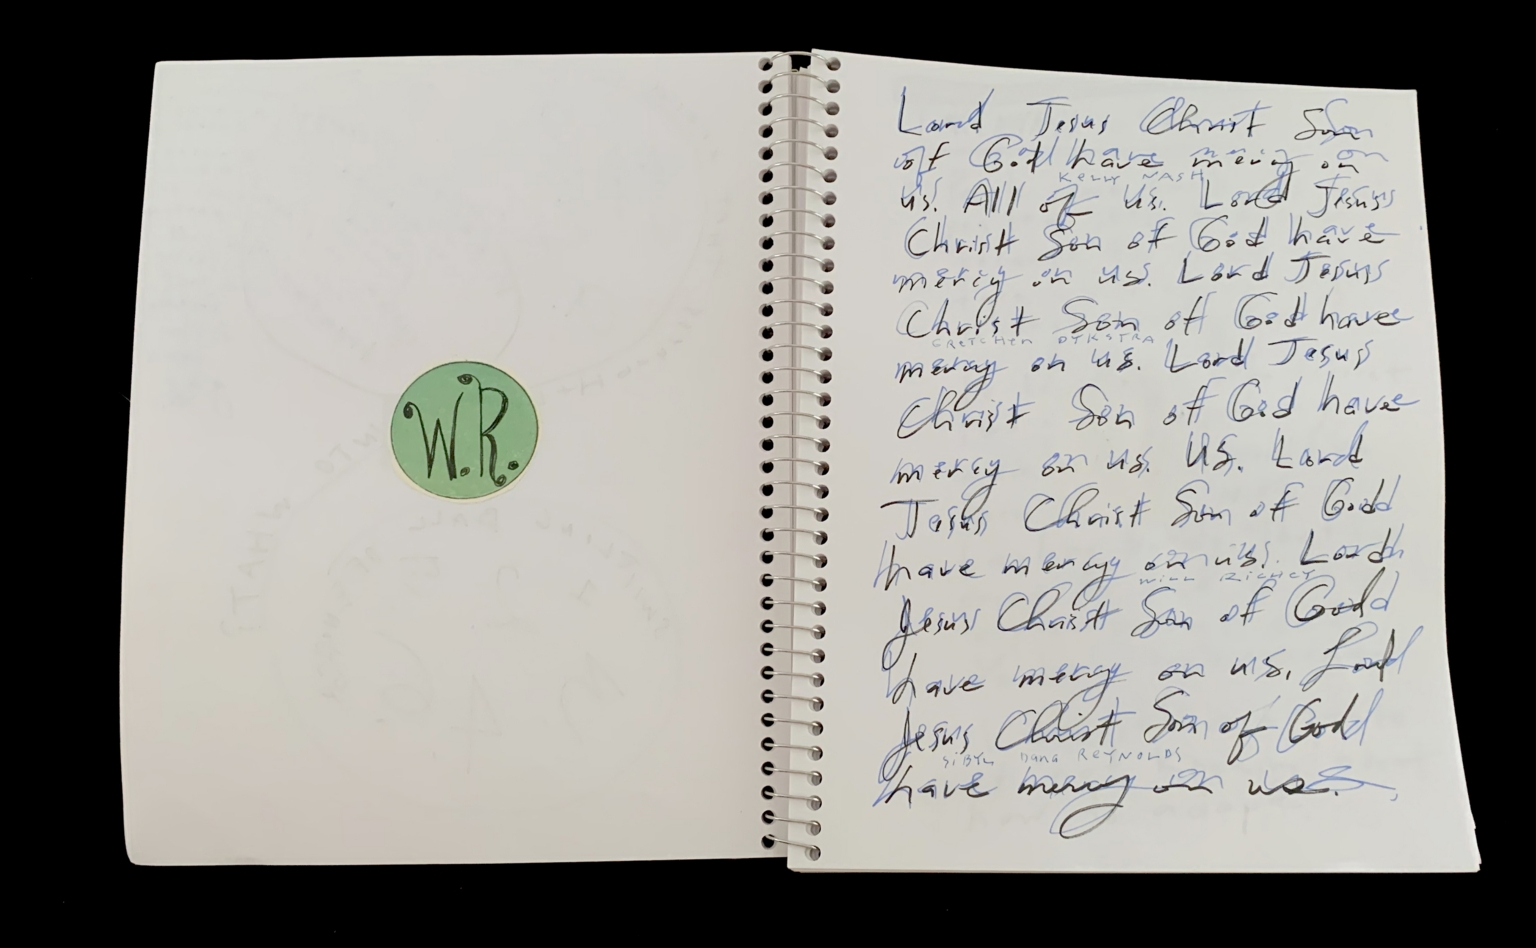 W.R.
Lord Jesus Christ Son
of God have mercy on
KELLY NASH
us. All of us. Lord Jesus
Christ Son of God have
mercy on us. Lord Jesus
Christ Son of God have
GRETCHEN DYKSTRA
mercy on us. Lord Jesus
Christ Son of God have
mercy on us. US. Lord
Jesus Christ Son of God
have mercy on us. Lord
WILL RICHEY
Jesus Christ Son of God
have mercy on us. Lord
Jesus Christ Son of God
SIBYL DANA REYNOLDS
have mercy on us.